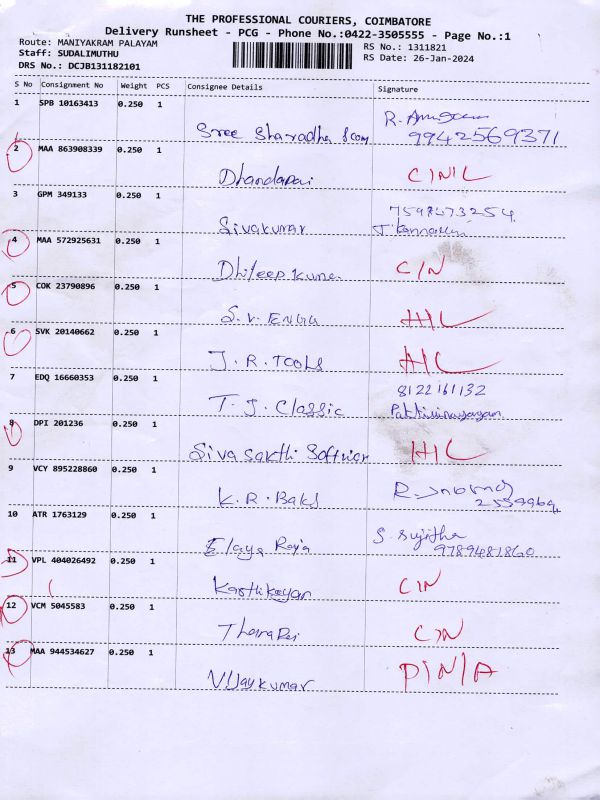 THE PROFESSIONAL COURIERS, COIMBATORE
Delivery Runsheet - PCG - Phone No.:0422-3505555 - Page No.:1
Route: MANIYAKRAM PALAYAM
RS No.: 1311821
Staff: SUDALIMUTHU
RS Date: 26-Jan-2024
DRS No.: DCJB131182101
S No Consignment No Weight PCS Consignee Details Signature
1 SPB 10163413 0.250 1
Sree Sharadha R.
9942569371
2 MAA 863908339 0.250 1
Dhandapai
3 GPM 349133 0.250 1
Sivakumar 7598473254
4 MAA 572925631 0.250 1
Dhileep Kume C/N
5 COK 23790896 0.250 1
S.V. ENGG
6 SVK 20140662 0.250 1
J.R. TOOLS
7 EDQ 16660353 0.250 1
T.J. Classic 8122161132
8 DPI 201236 0.250 1
Siva Sakthi
9 VCY 895228860 0.250 1
K.R. Baks R.
10 ATR 1763129 0.250 1
Elaya Raja S. Sujitha
9789481860
11 VPL 404026492 0.250 1
Karthikeyan C/N
12 VCM 5045583 0.250 1
C/N
13 MAA 944534627 0.250 1
Vijaykumar P/N/A